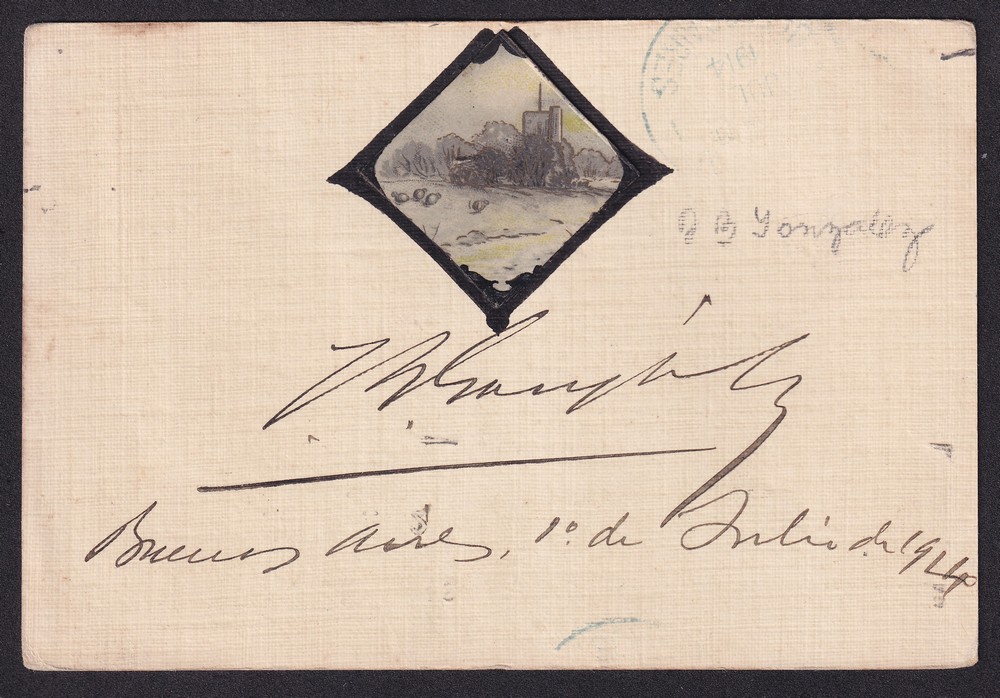 J B Gonzalez
J. B. Gonzalez
Buenos Aires, 1º de Julio de 1914